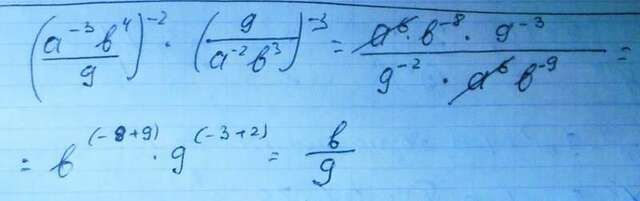 (a⁻³b⁴/9)⁻² · (9/(a⁻²b³))⁻³ = (a⁶ · b⁻⁸ · 9⁻³)/(9⁻² · a⁶ b⁻⁹) =
= b⁽⁻⁸⁺⁹⁾ · 9⁽⁻³⁺²⁾ = b/9